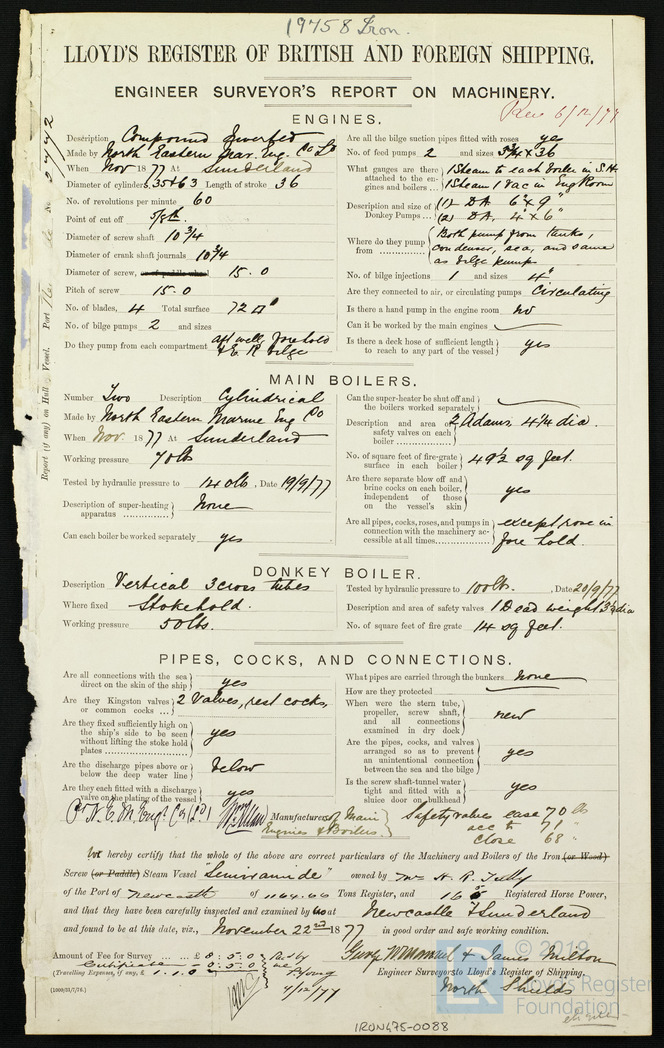 19758 Iron.
LLOYD'S REGISTER OF BRITISH AND FOREIGN SHIPPING.
ENGINEER SURVEYOR'S REPORT ON MACHINERY.
Rec 6/12/77
ENGINES.
Description Compound Inverted
Made by North Eastern Mar. Eng. Co Ld
When Nov 1877 At Sunderland
Diameter of cylinders, 35 & 63 Length of stroke 36
No. of revolutions per minute 60
Point of cut off 5/8th.
Diameter of screw shaft 10 3/4
Diameter of crank shaft journals 10 3/4
Diameter of screw, 15.0
Pitch of screw 15.0
No. of blades, 4 Total surface 72
No. of bilge pumps 2 and sizes
Do they pump from each compartment aft well, fore hold
& E R bilge
Are all the bilge suction pipes fitted with roses yes
No. of feed pumps 2 and sizes 3 3/4 x 36
What gauges there are attached to the engines and boilers ... 1 Steam to each boiler in S.H.
1 Steam 1 Vac in Eng Room
Description and size of Donkey Pumps ... (1) D.A. 6" x 9"
(2) D.A. 4" x 6"
Where do they pump from ... Both pump from tanks,
condenser, sea, and same
as bilge pumps
No. of bilge injections 1 and sizes 4"
Are they connected to air, or circulating pumps Circulating
Is there a hand pump in the engine room no
Can it be worked by the main engines
Is there a deck hose of sufficient length to reach to any part of the vessel yes
MAIN BOILERS.
Number Two Description Cylindrical
Made by North Eastern Marine Eng Co
When Nov. 1877 At Sunderland
Working pressure 70 lbs
Tested by hydraulic pressure to 140 lb, Date 19/9/77
Description of super-heating apparatus ... None
Can each boiler be worked separately yes
Can the super-heater be shut off and the boilers worked separately
Description and area of safety valves on each boiler ... 2 Adams 4 1/4 dia.
No. of square feet of fire-grate surface in each boiler 49 1/2 sq feet.
Are there separate blow off and brine cocks on each boiler, independent of those on the vessel's skin yes
Are all pipes, cocks, roses, and pumps in connection with the machinery accessible at all times ... except rose in
fore hold.
DONKEY BOILER.
Description Vertical 3 cross tubes
Where fixed Stokehold.
Working pressure 50 lbs.
Tested by hydraulic pressure to 100 lb. , Date 20/9/77
Description and area of safety valves 1 Dead weight 3 1/2 dia
No. of square feet of fire grate 14 sq feet.
PIPES, COCKS, AND CONNECTIONS.
Are all connections with the sea direct on the skin of the ship yes
Are they Kingston valves or common cocks ... 2 Valves, rest cocks,
Are they fixed sufficiently high on the ship's side to be seen without lifting the stoke hold plates yes
Are the discharge pipes above or below the deep water line below
Are they each fitted with a discharge valve on the plating of the vessel yes
What pipes are carried through the bunkers none
How are they protected
When were the stern tube, propeller, screw shaft, and all connections examined in dry dock new
Are the pipes, cocks, and valves arranged so as to prevent an unintentional connection between the sea and the bilge yes
Is the screw shaft-tunnel water tight and fitted with a sluice door on bulkhead yes
Manufacturers of Main
Engines & Boilers.
Safety valves ease 70 lb
acc to 71 "
close 68 "
We hereby certify that the whole of the above are correct particulars of the Machinery and Boilers of the Iron (or Wood)
Screw (or Paddle) Steam Vessel "Semiramide" owned by
of the Port of Newcastle of Tons Register, and Registered Horse Power,
and that they have been carefully inspected and examined by us at Newcastle & Sunderland
and found to be at this date, viz., November 22nd 1877 in good order and safe working condition.
Amount of Fee for Survey ... £8:0:0
Certificate
(Travelling Expenses, if any, £ 1.1.0
4/12/77
James Milton
Engineer Surveyors to Lloyd's Register of Shipping,
North Shields
IRON475-0088
© 2019
Lloyd's Register
Foundation